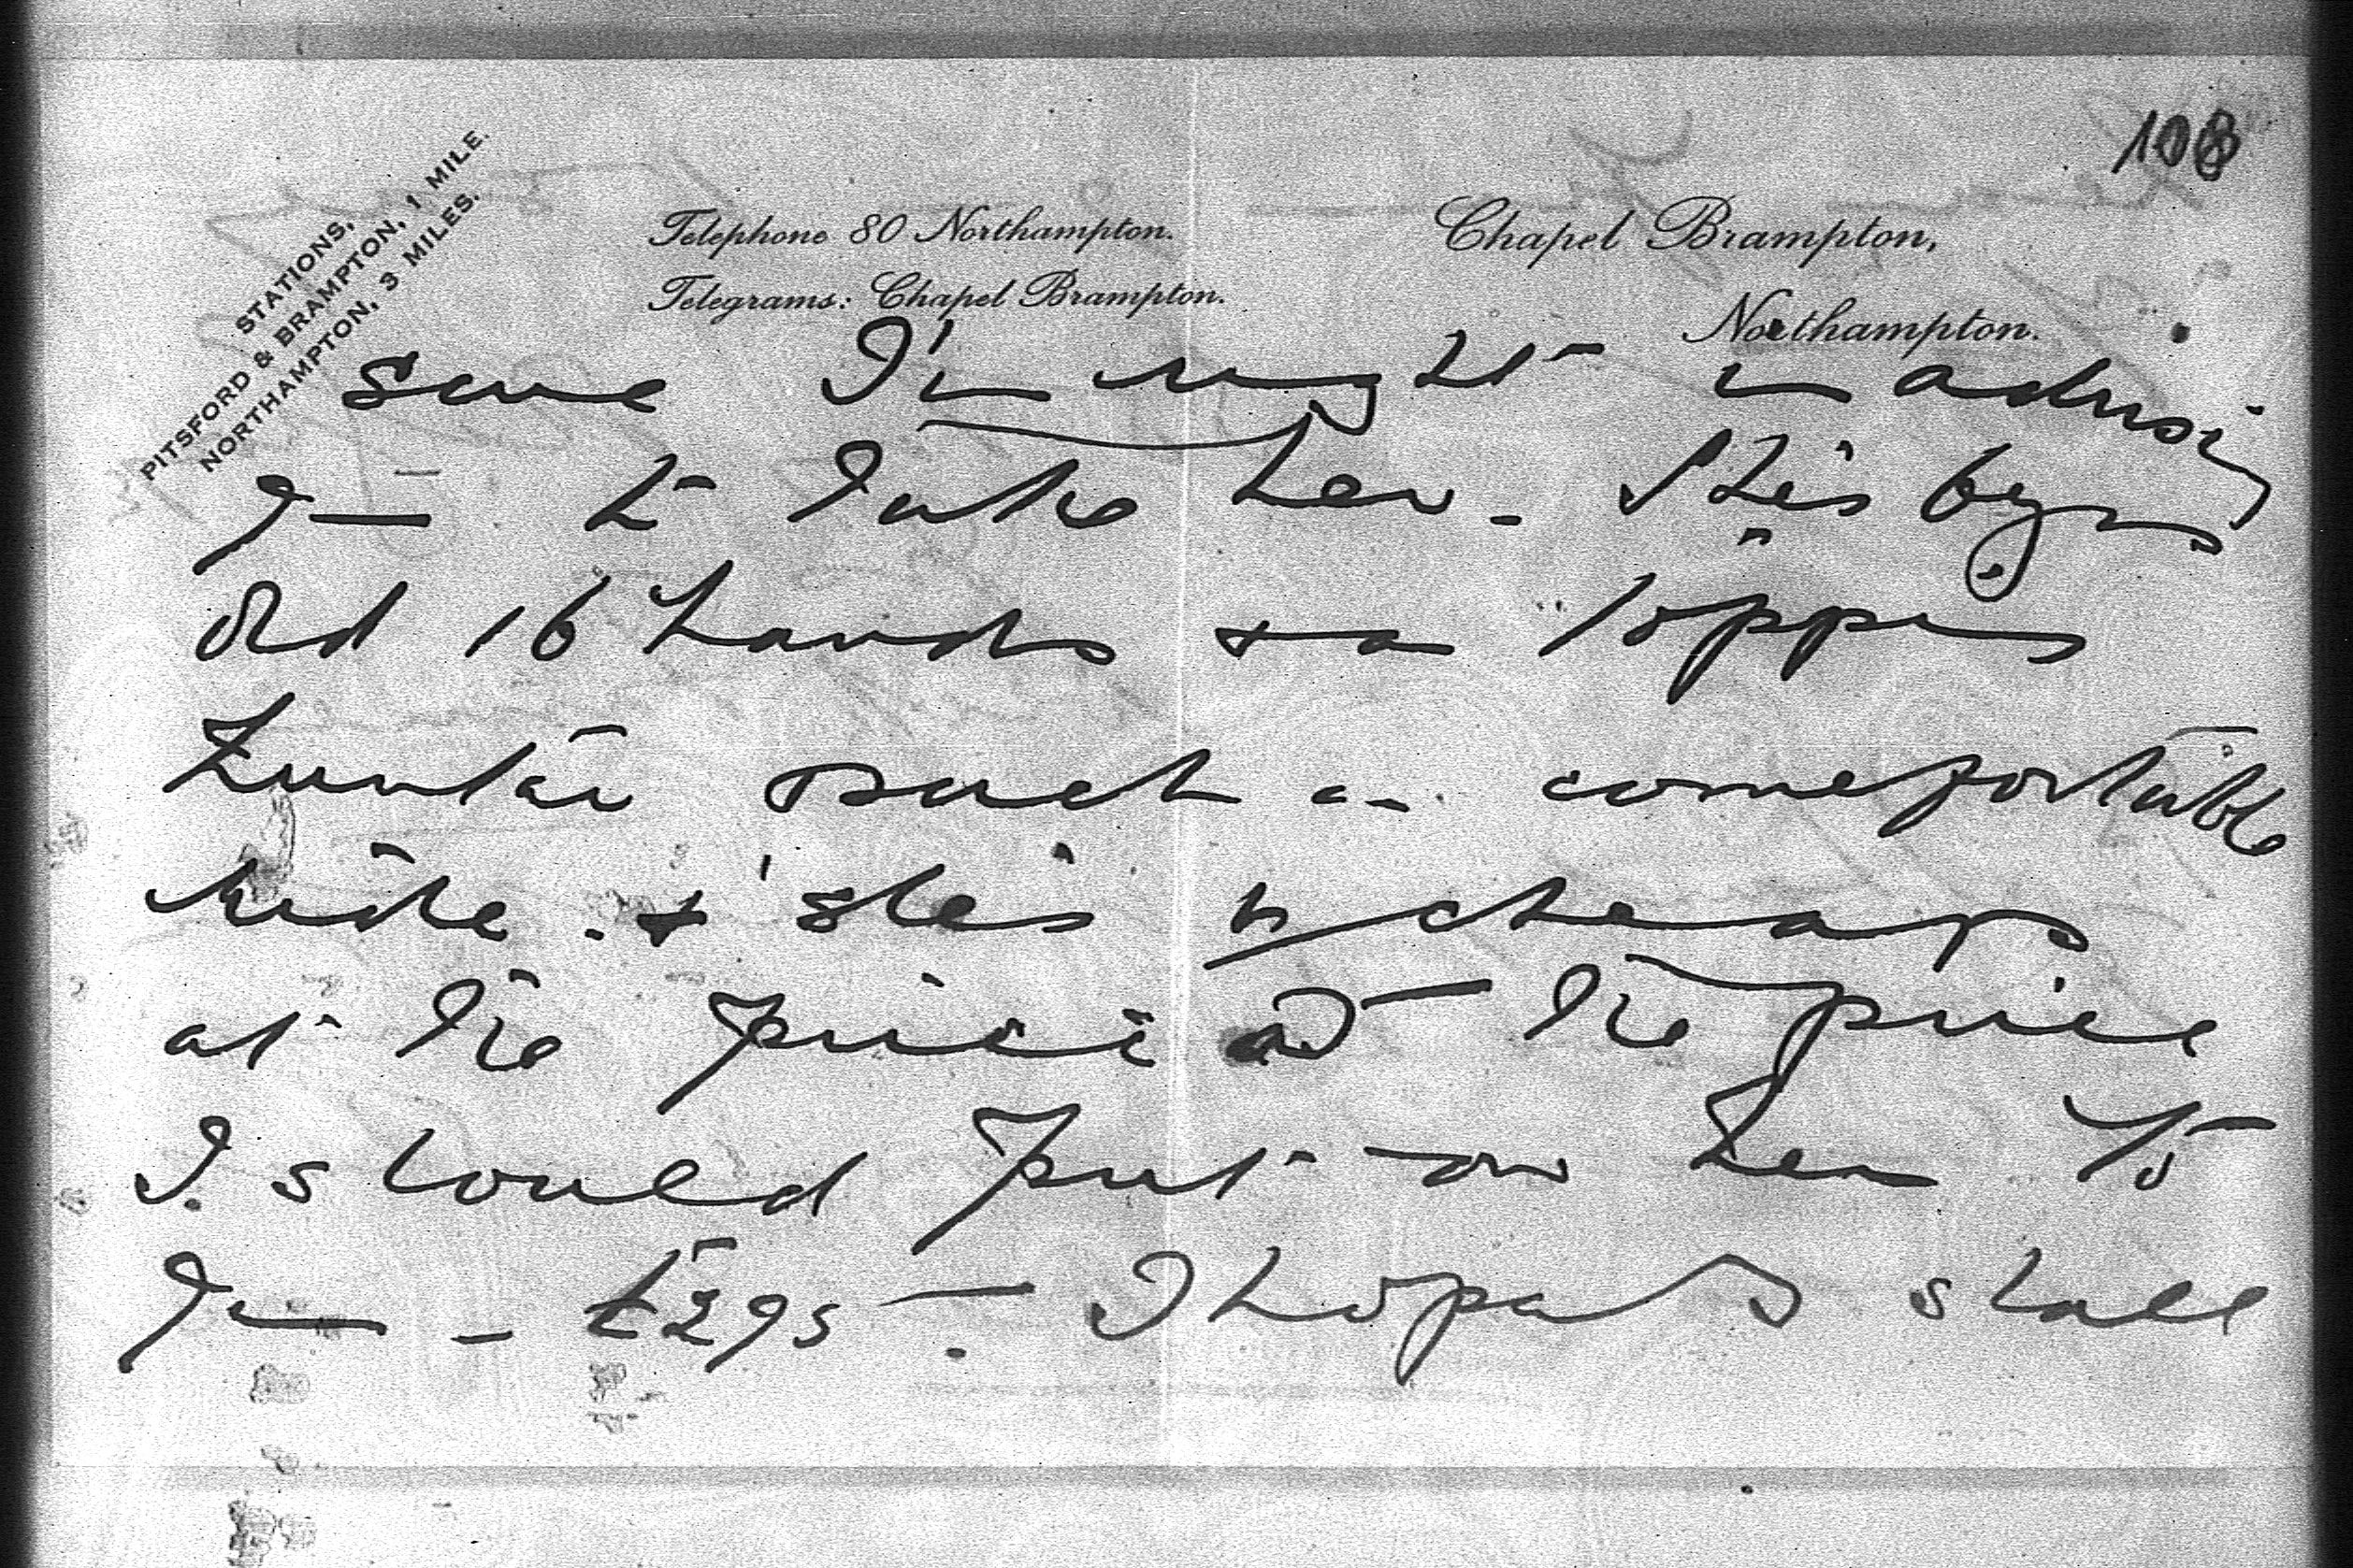 108
STATIONS,
PITSFORD & BRAMPTON, 1 MILE.
NORTHAMPTON, 3 MILES.
Telephone 80 Northampton.
Telegrams: Chapel Brampton.
Chapel Brampton,
Northampton.
sure I'm right in advising
you to take her - She's 6 yrs
old 16 hands & a topping
hunter such a comfortable
ride . & she's cheap
at the price at the price
I should put on her to
you - £295 - I hope I shall